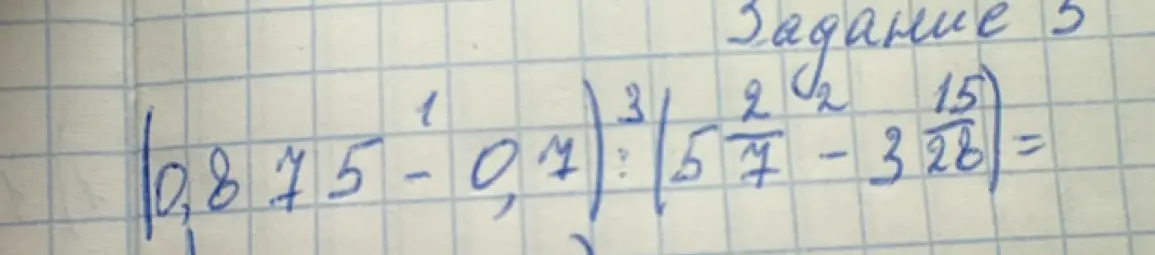 Задание 5
(0,875 - 0,7) : (5 2/7 - 3 15/28) =
1 3 2